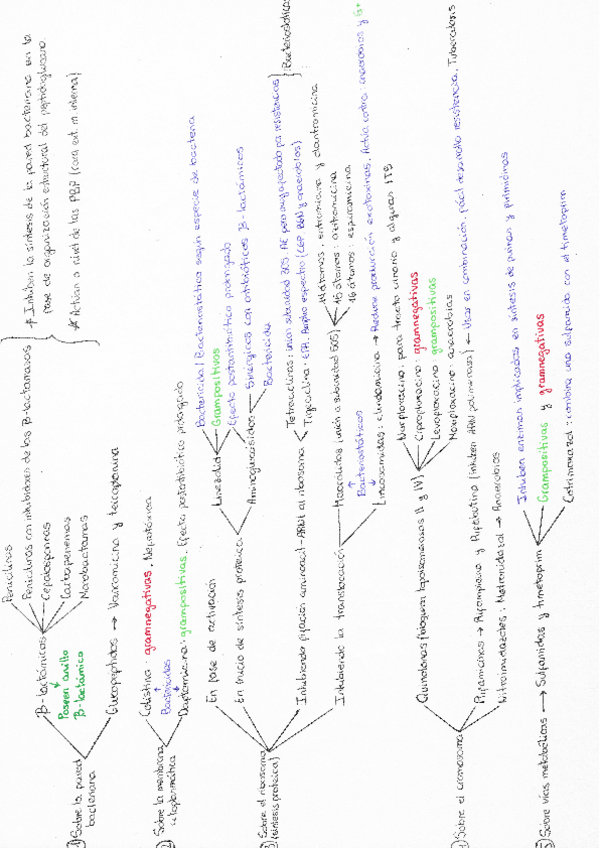 ① Sobre la pared bacteriana
β-lactámicos
↓
Poseen anillo β-lactámico
Penicilinas
Penicilinas con inhibidores de las β-lactamasas
Cefalosporinas
Carbapenemas
Monobactamas
* Inhiben la síntesis de la pared bacteriana en la fase de organización estructural del peptidoglucano.
* Actúan a nivel de las PBP (cara ext. m. interna)
Glucopéptidos → Vancomicina y teicoplanina
② Sobre la membrana citoplasmática
Colistina: gramnegativas. Nefrotóxica
Bactericidas
Daptomicina: grampositivas. Efecto postantibiótico prolongado
③ Sobre el ribosoma (síntesis proteica)
En fase de activación
En inicio de síntesis proteica
Linezolid
Bactericida/Bacteriostático según especie de bacteria
Grampositivos
Efecto postantibiótico prolongado
Aminoglucósidos
Sinérgicos con antibióticos β-lactámicos
Bactericida
Inhibiendo fijación aminoacil-ARNt al ribosoma
Tetraciclinas: unión subunidad 30S. AE pero muy afectado por resistencias
Tigeciclina: EPA. Amplio espectro (CGP, BGN y anaerobios)
Bacteriostáticos
Inhibiendo la translocación
Macrólidos (unión a subunidad 50S)
14 átomos: eritromicina y claritromicina
15 átomos: azitromicina
16 átomos: espiramicina
Bacteriostáticos
Lincosamidas: clindamicina → Reduce producción exotoxinas. Activa contra: anaerobios y G+
④ Sobre el cromosoma
Quinolonas (bloquean topoisomerasas II y IV)
Norfloxacino: para tracto urinario y algunas ITS
Ciprofloxacino: gramnegativas
Levofloxacino: grampositivas
Moxifloxacino: anaerobias
Rifamicinas → Rifampicina y Rifabutina (inhiben ARN polimerasa) ← Usar en combinación, fácil desarrollo resistencia. Tuberculosis
Nitroimidazoles: Metronidazol → Anaerobios
⑤ Sobre vías metabólicas → Sulfamidas y trimetoprim
Inhiben enzimas implicadas en síntesis de purinas y pirimidinas
Grampositivas y gramnegativas
Cotrimoxazol: combina una sulfamida con el timetoprim